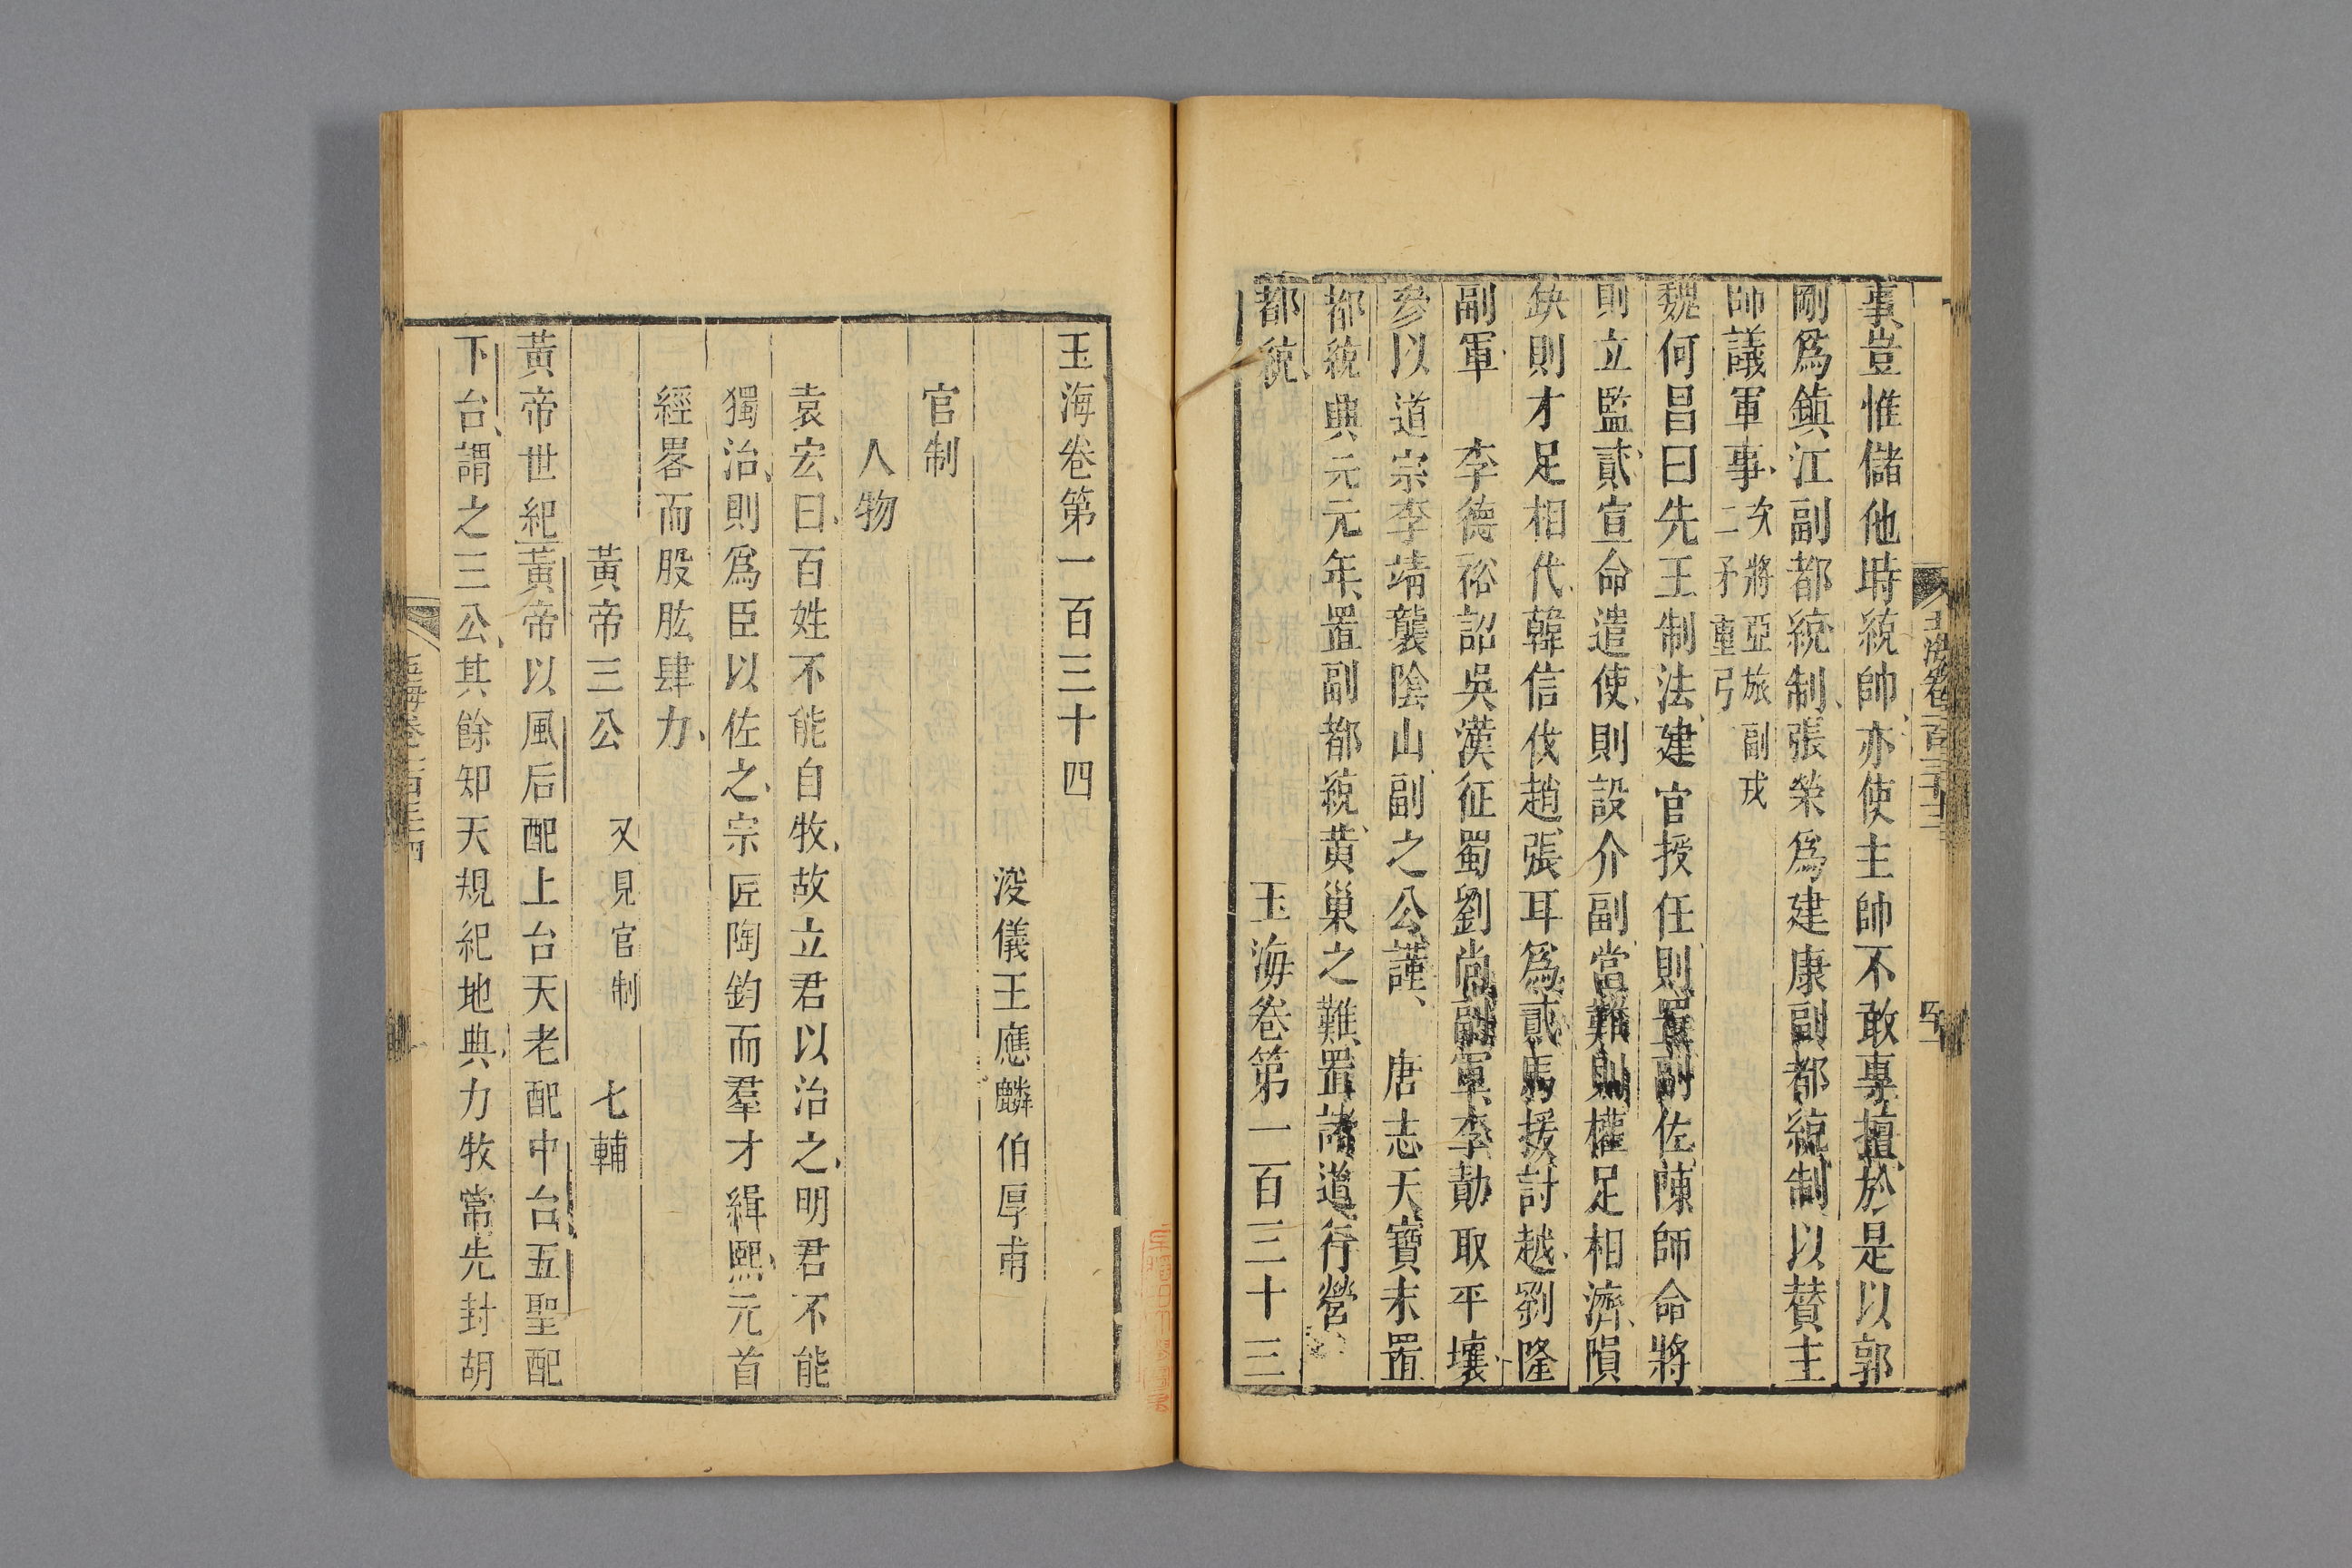 事豈惟儲他時統帥亦使主帥不敢專擅於是以郭
剛爲鎮江副都統制張榮爲建康副都統制以賛主
帥議軍事次將亞旅副戎二矛重弓
魏何昌曰先王制法建官授任則置副佐陳師命將
則立監貳宣命遣使則設介副當難則權足相濟隕
缺則才足相代韓信伐趙張耳爲貳馬援討越劉隆
副軍 李德裕詔吳漢征蜀劉尚副軍李勣取平壤
參以道宗李靖襲陰山副之公謹 唐志天寶末置
都統興元元年置副都統黄巢之難置諸道行營
都統 玉海卷第一百三十三
玉海卷第一百三十四
浚儀王應麟伯厚甫
官制
人物
袁宏曰百姓不能自牧故立君以治之明君不能
獨治則爲臣以佐之宗匠陶鈞而羣才緝熙元首
經畧而股肱肆力
黃帝三公 又見官制 七輔
黃帝世紀黃帝以風后配上台天老配中台五聖配
下台謂之三公其餘知天規紀地典力牧常先封胡
玉海卷一百三十四